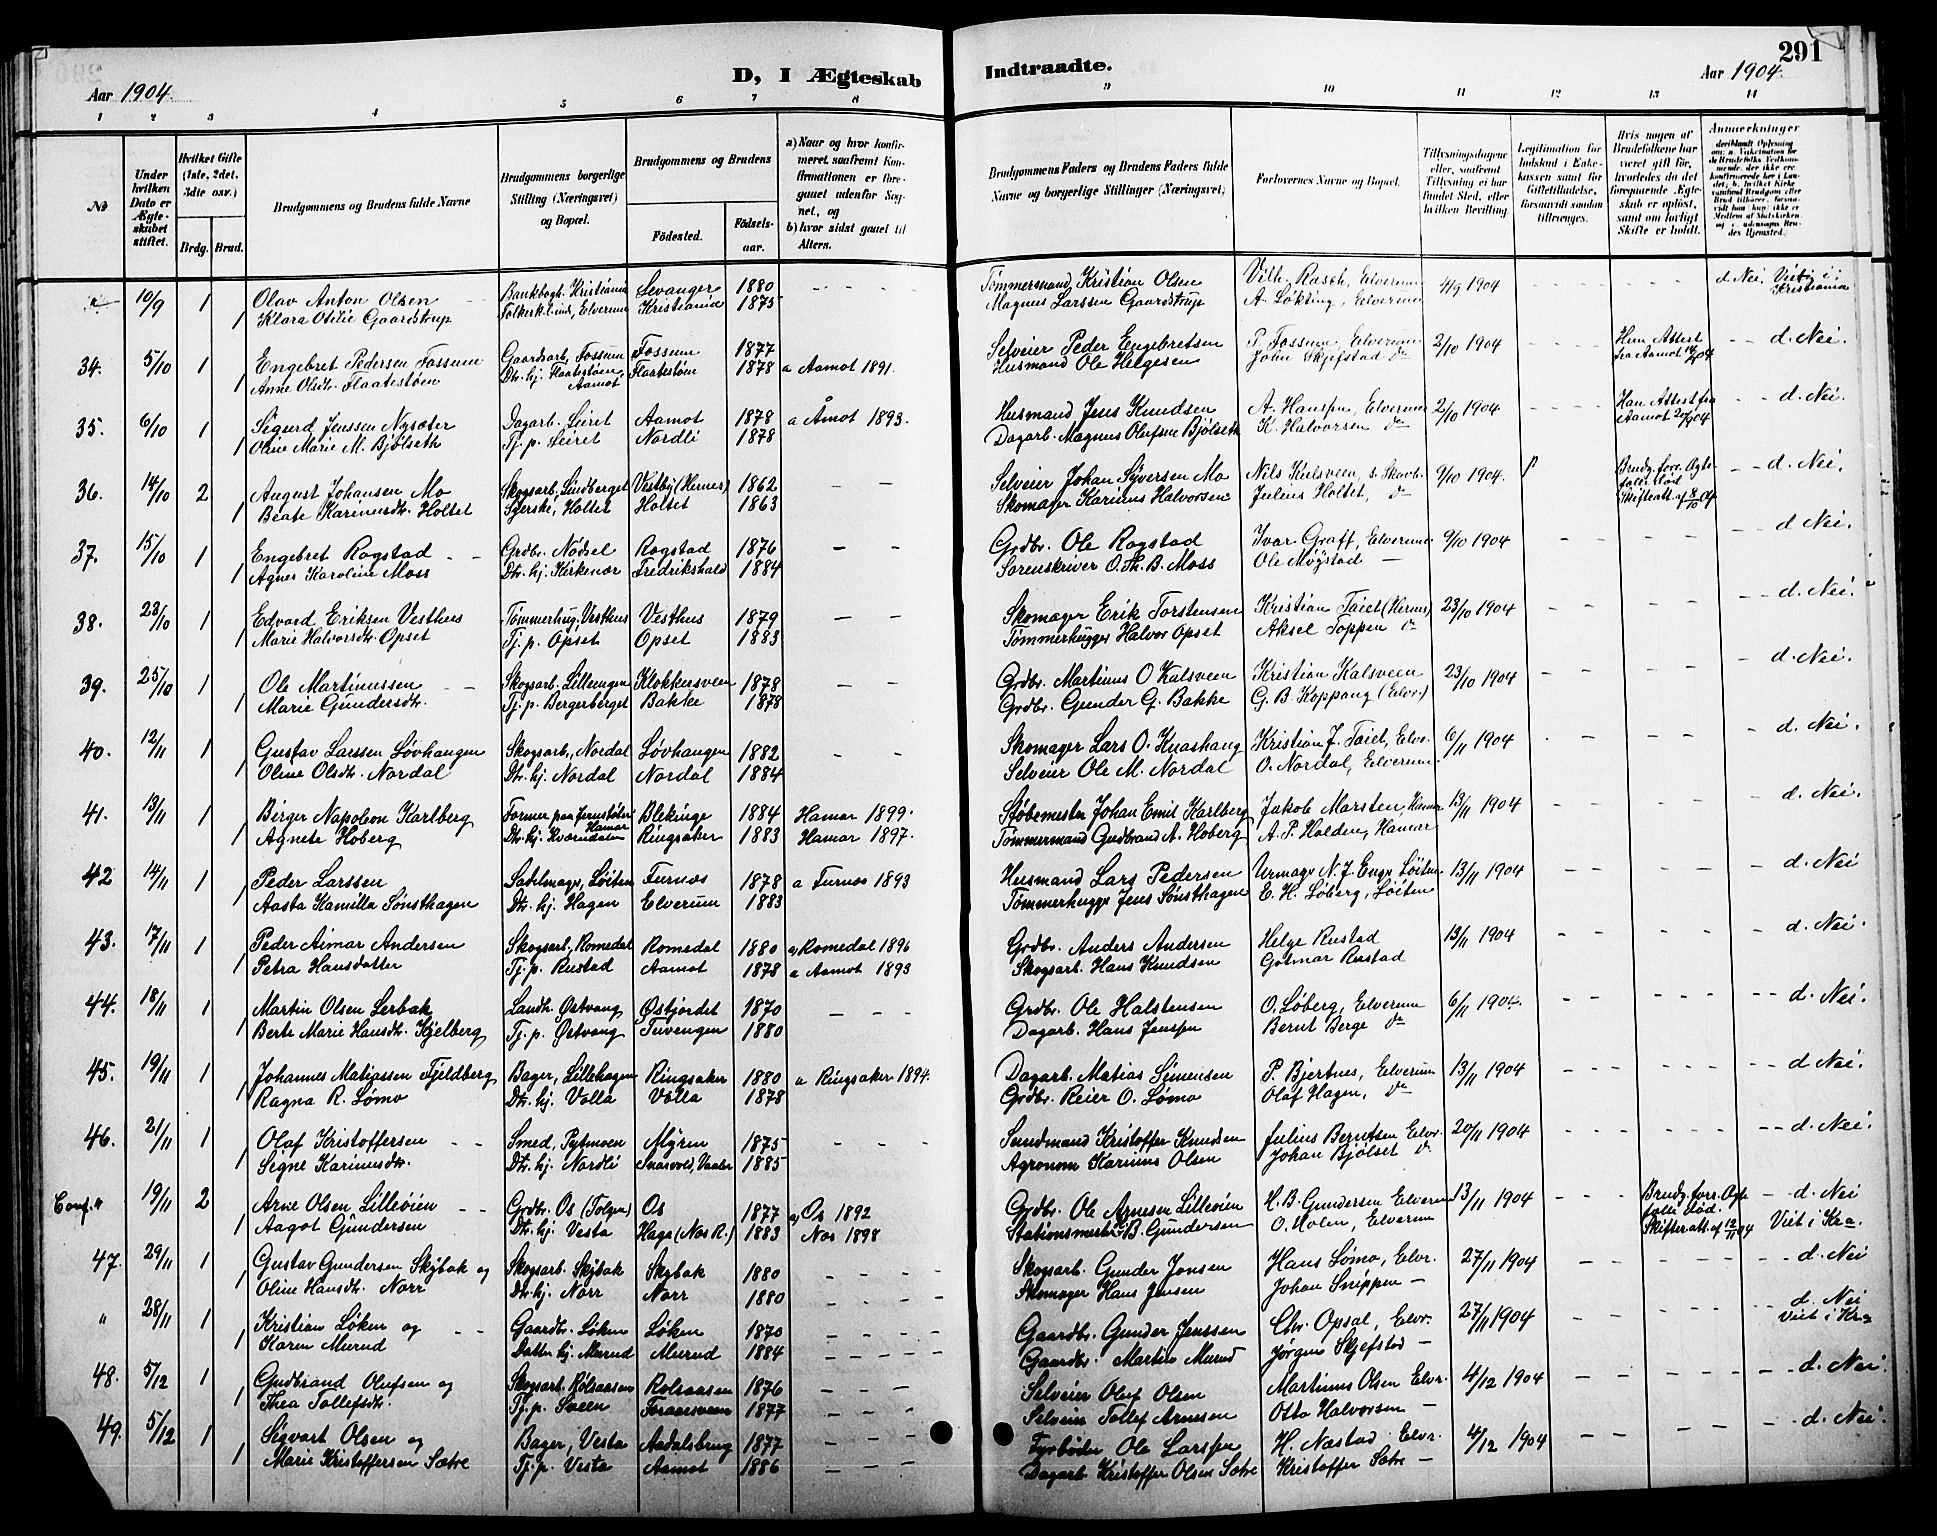 291
D, I Ægteskab Indtraadte.
Aar 1904.
Aar 1904.
1 2 3 4 5 6 7 8 9 10 11 12 13 14
No
Under hvilken Dato er Ægteskabet stiftet.
Hvilket Gifte (1ste, 2det, 3die osv.)
Brdg. Brud.
Brudgommens og Brudens fulde Navne
Brudgommens borgerlige Stilling (Næringsvei) og Bopæl.
Brudgommens og Brudens
Födested.
Födselsaar.
a) Naar og hvor konfirmeret, saafremt Konfirmationen er foregaaet udenfor Sognet, og
b) hvor sidst gaaet til Alters.
Brudgommens Faders og Brudens Faders fulde Navne og borgerlige Stillinger (Næringsvei)
Forlovernes Navne og Bopæl.
Tillysningsdagene eller, saafremt Tillysning ei har fundet Sted, efter hvilken Bevilling.
Legitimation for Indskud i Enkekassen samt for Giftetilladelse, forsaavidt saadan tiltrænges.
Hvis nogen af Brudefolkene har været gift för, hvorledes da det foregaaende Ægteskab er oplöst, samt om lovligt Skifte er holdt.
Anmerkninger
" 10/9 1 Olav Anton Olsen Bankbogh. Kristiania Levanger 1880 - - Tømmermand Kristian Olsen Vilh. Rasch, Elverum 4/9 1904 d. Nei. Viet i Kristiania
1 Klara Otilie Gaardstrup Elverum Kristiania 1875 Magnus Larssen Gaardstrup A. Løkting, Elverum
34. 5/10 1 Engebret Pedersen Fossum Gaardsarb. Fossum Fossum 1877 Selveier Peder Engebretsen P. Fossum, Elverum 2/10 1904 Hun Attest fra Aamot d. Nei.
1 Anne Olsdtr. Flaatestøen Dtr. hj. Flaatestøen, Aamot Flaatestøen 1878 a Aamot 1891. Husmand Ole Helgesen John Skjefstad do
35. 6/10 1 Sigurd Jenssen Nysæter Dagarb. Leiret Aamot 1878 a Åmot 1893. Husmand Jens Knudsen A. Hanssen, Elverum 2/10 1904 Han Attest fra Aamot 20/9 04 d. Nei.
1 Oline Marie M. Bjølseth Tj. p. Leiret Nordli 1878 Dagarb. Magnus Olufsen Bjølseth K. Halvorsen do
36. 14/10 2 August Johansen Mo Skogsarb. Lindberget Vestby (Hernes) 1862 - - Selveier Johan Syversen Mo Nils Kulsveen, s. Skavb. 9/10 1904. Brudg. forr. Ægtefælle död Skifteatt. af 8/10 04 d. Nei.
1 Beate Karinusdtr. Holtet Syerske, Holtet Holtet 1863 Skomager Karinus Halvorsen Julius Holtet, do
37. 15/10 1 Engebret Rogstad Grdbr. Nödsel Rogstad 1876 - - Grdbr. Ole Rogstad Ivar Graff, Elverum 9/10 1904 d. Nei.
1 Agnes Karoline Moss Dtr. hj. Kirkenær Fredrikshald 1884 Sorenskriver O. Th. B. Moss Ole Møystad -
38. 23/10 1 Edvard Eriksen Vesthus Tømmerhug. Vesthus Vesthus 1879 - - Skomager Erik Torstensen Kristian Taiet (Hernes) 23/10 1904 d. Nei.
1 Marie Halvorsdtr. Opset Tj. p. Opset Opset 1883 Tømmerhugger Halvor Opset Aksel Toppen do
39. 25/10 1 Ole Martinussen Skogsarb. Lillemgen Klokkersveen 1878 - - Grdbr. Martinus O. Kalsveen Kristian Kalsveen 23/10 1904 d. Nei.
1 Marie Gundersdtr. Tj. p. Bergerberget Bakke 1878 Grdbr. Gunder G. Bakke G. B. Koppang (Elvr.)
40. 12/11 1 Gustav Larssen Løvhaugen Skogsarb., Nordal Løvhaugen 1882 - - Skomager Lars O. Knashaug Kristian J. Taiet, Elvr. 6/11 1904 d. Nei.
1 Oline Olsdtr. Nordal Dtr. hj. Nordal Nordal 1884 Selveier Ole M. Nordal O. Nordal, Elverum
41. 13/11 1 Birger Napoleon Karlberg Former paa Jernstøberi Hamar Blekinge 1884 Hamar 1899. Støbemester Johan Emil Karlberg Jakob Marsten, Hamar 13/11 1904 d. Nei.
1 Agnete Hoberg Dtr. hj. Kværndalen Ringsaker 1883 Hamar 1897. Tømmermand Gudbrand A. Hoberg A. P. Holden, Hamar
42 14/11 1 Peder Larssen Sadelmager, Løiten Furnæs 1878 a Furnæs 1893 Husmand Lars Pedersen Urmager N. J. Enge, Løiten 13/11 1904 d. Nei
1 Aasta Kamilla Sønsthagen Dtr. hj. Hagen Elverum 1883 Tømmerhugger Jens Sønsthagen E. H. Løberg, Løiten
43. 17/11 1 Peder Aimar Andersen Skogsarb., Romedal Romedal 1880 a) Romedal 1896 Grdbr. Anders Andersen Helge Rustad 13/11 1904 d. Nei.
1 Petra Hansdatter Tj. p. Rustad Aamot 1878 a Aamot 1893 Skogsarb. Hans Knudsen Gotmar Rustad
44. 18/11 1 Martin Olsen Lerbak Landh. Østvang Østjordet 1870 - - Grdbr. Ole Halstensen O. Løberg, Elverum 6/11 1904. d. Nei.
1 Berte Marie Hansdtr. Kjelberg Tj. p. Østvang Tuvengen 1880 Dagarb. Hans Jenssen Bernt Berge do
45. 19/11 1 Johannes Matiassen Fjeldberg Bager, Lillehagen Ringsaker 1880 a Ringsaker 1894. Dagarb. Matias Simensen P. Bjertnes, Elverum 13/11 1904 d. Nei.
1 Ragna R. Lømo Dtr. hj. Volla Volla 1878 Grdbr. Reier O. Lømo Olaf Hagen, do
46. 21/11 1 Olaf Kristoffersen Smed, Pytmoen Myren 1875 - - Sundmand Kristoffer Knudsen Julius Berntsen Elvr. 20/11 1904 d. Nei.
1 Signe Karinusdtr. Dtr. hj. Nordli Vaaler 1885 Agronom Karinus Olsen Johan Bjølset do
Conf. " 19/11 2 Arne Olsen Lilleøien Grdbr. Os (Tolgen) Os 1877 a) Os 1892 Grdbr. Ole Arnesen Lilleøien H. B. Gundersen Elverum 13/11 1904 Brudg. forr. Ægtefælle död. Skifteratt. af 12/11 04 d. Nei Viet i Kra.
1 Aagot Gundersen Dtr. hj. Vesta Haga (Næs R.) 1883 Næs 1898 Stationsmester B. Gundersen O. Holen, Elverum
47. 29/11 1 Gustav Gundersen Skybak og Skogsarb. Skybak Skybak 1880 - - Skogsarb. Gunder Jonsen Hans Lømo, Elvr. 27/11 1904 d. Nei
1 Oline Hansdtr. Norr Dtr. hj. Norr Norr 1880 Skomager Hans Jensen Johan Snippen -
" 28/11 1 Kristian Løken og Gaardbr. Løken Løken 1870 - - Gaardbr. Gunder Jenssen Chr. Opsal, Elvr. 27/11 1904 d. Nei Viet i Kra
1 Karen Murud Datter hj. Murud Murud 1884 Gaardbr. Martin Murud Jørgen Skjefstad -
48. 5/12 1 Gudbrand Olufsen og Skogsarb. Rolsaasen Rolsaasen 1876 - - Selveier Oluf Olsen Martinus Olsen Elvr. 4/12 1904 d. Nei.
1 Thea Tollefsdtr. Tj. p. Sveen Foraasveen 1877 Selveier Tollef Arnesen Otto Halvorsen -
49. 5/12 1 Sigvart Olsen og Bager, Vesta Aadalsbrug 1877 - - Fyrbøder Ole Larssen H. Næstad Elvr. 4/12 1904 d. Nei.
1 Marie Kristoffersen Sætre Tj. p. Vesta Aamot 1886 Dagarb. Kristoffer Olsen Sætre Kristoffer Sætre -